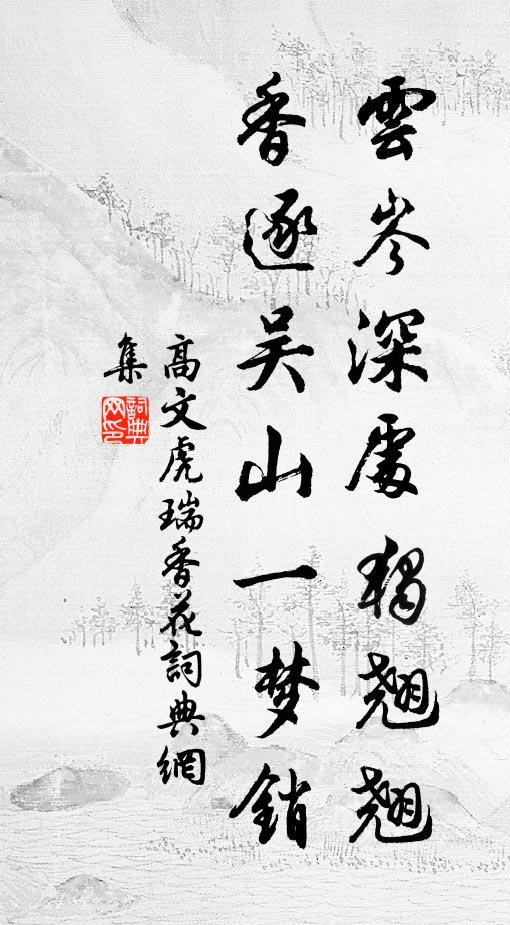 雲岑深處獨翹翹
香逐吴山一梦銷
高文虎瑞香花詞典網
集
詞典网印